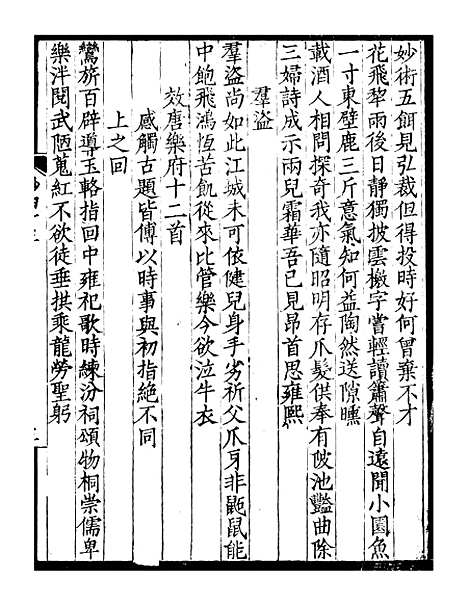 妙術五餌見弘裁但得投時好何曾棄不才
花飛犂雨後日靜獨披雲檄字嘗輕讀簫聲自遠聞小園魚
一寸東壁鹿三斤意氣知何益陶然送隙曛
載酒人相問探奇我亦隨昭明存爪髮供奉有陂池豔曲除
三婦詩成示兩兒霜華吾已見昂首思雍熙
羣盜
羣盜尚如此江城未可依健兒身手劣祈父爪牙非鼫鼠能
中飽飛鴻恆苦飢從來比管樂今欲泣牛衣
效唐樂府十二首
感觸古題皆傅以時事與初指絶不同
上之回
鸞旂百辟導玉輅指回中雍祀歌時練汾祠頌物桐崇儒卑
樂洋閱武陋蒐紅不欲徒垂拱乘龍勞聖躬